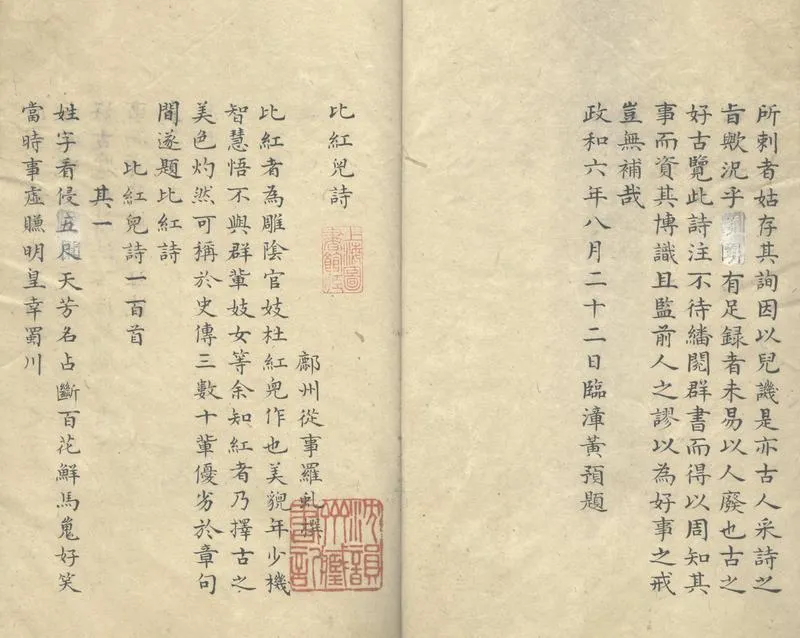 所刺者姑存其詢因以兒譏是亦古人采詩之
旨歟況乎有足録者未易以人廢也古之
好古覽此詩注不待繙閱群書而得以周知其
事而資其博識且監前人之謬以為好事之戒
豈無補哉
政和六年八月二十二日臨漳黃預題
比紅兒詩
上海圖書館藏
鄜州從事羅虬撰
比紅者為雕陰官妓杜紅兒作也美貌年少機
智慧悟不與群輩妓女等余知紅者乃擇古之
美色灼然可稱於史傳三數十輩優劣於章句
間遂題比紅詩
比紅兒詩一百首
其一
姓字看侵五天芳名占斷百花鮮馬嵬好笑
當時事虛賺明皇幸蜀川